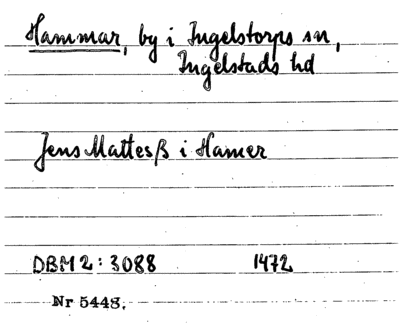 Hammar, by i Ingelstorps sn,
Ingelstads hd
Jens Mattesß i Hamer
DBM 2: 3088 1472
Nr 5448.